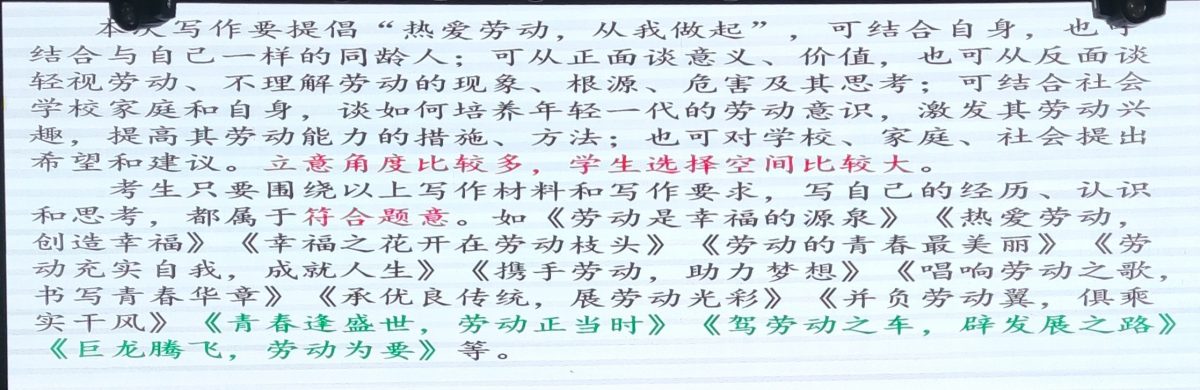 本次写作要提倡“热爱劳动，从我做起”，可结合自身，也可
结合与自己一样的同龄人；可从正面谈意义、价值，也可从反面谈
轻视劳动、不理解劳动的现象、根源、危害及其思考；可结合社会
学校家庭和自身，谈如何培养年轻一代的劳动意识，激发其劳动兴
趣，提高其劳动能力的措施、方法；也可对学校、家庭、社会提出
希望和建议。立意角度比较多，学生选择空间比较大。
考生只要围绕以上写作材料和写作要求，写自己的经历、认识
和思考，都属于符合题意。如《劳动是幸福的源泉》《热爱劳动，
创造幸福》《幸福之花开在劳动枝头》《劳动的青春最美丽》《劳
动充实自我，成就人生》《携手劳动，助力梦想》《唱响劳动之歌，
书写青春华章》《承优良传统，展劳动光彩》《并负劳动翼，俱乘
实干风》《青春逢盛世，劳动正当时》《驾劳动之车，辟发展之路》
《巨龙腾飞，劳动为要》等。